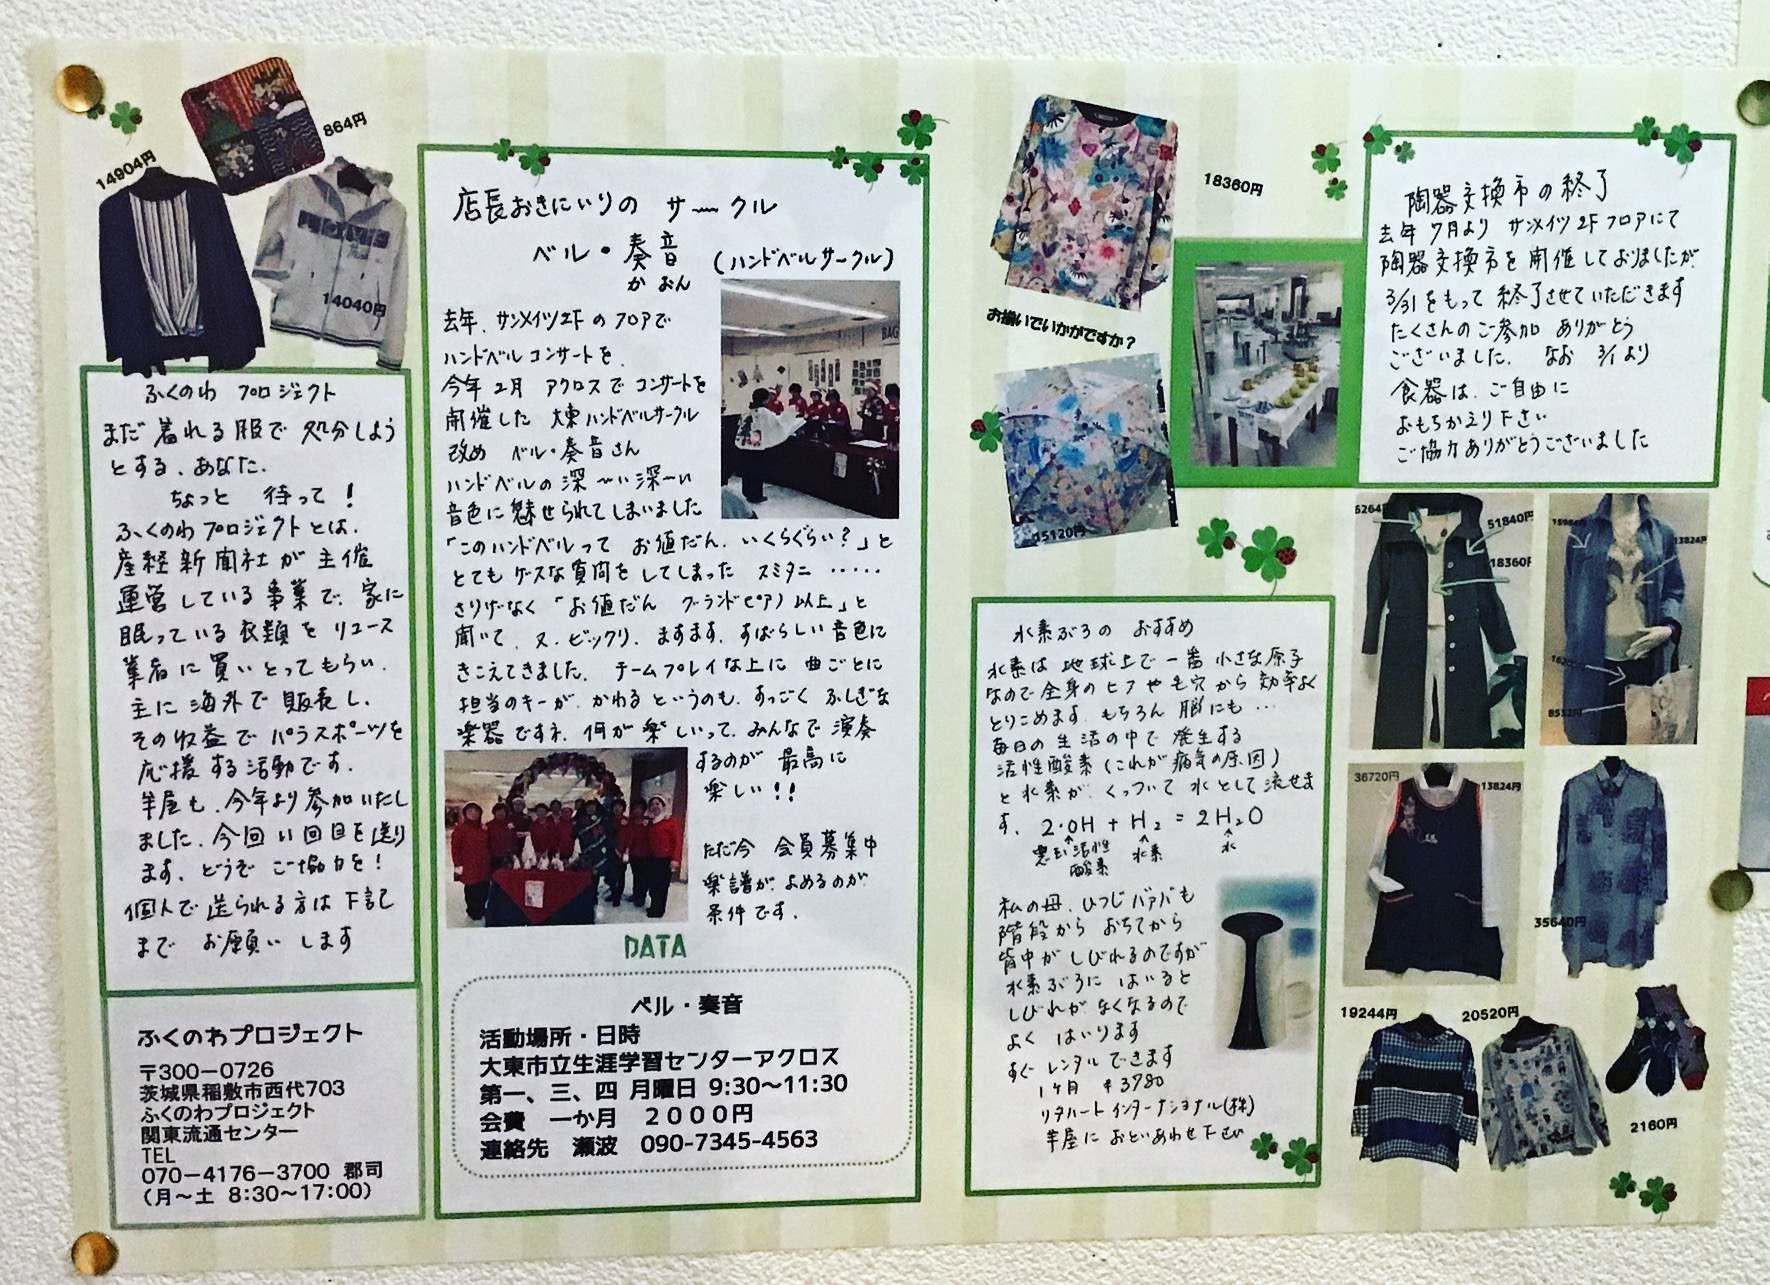 14904円
864円
14040円
ふくのわ プロジェクト
まだ着れる服で処分しよう
とする、あなた、
ちょっと 待って!
ふくのわプロジェクトとは、
産経新聞社が主催
運営している事業で、家に
眠っている衣類をリユース
業者に買いとってもらい、
主に海外で販売し、
その収益でパラスポーツを
応援する活動です。
羊屋も、今年より参加いたし
ました、今回11回目を送り
ます、どうぞ ご協力を!
個人で送られる方は下記
まで お願い します
ふくのわプロジェクト
〒300-0726
茨城県稲敷市西代703
ふくのわプロジェクト
関東流通センター
TEL
070-4176-3700 郡司
(月〜土 8:30〜17:00)
店長おきにいりの サークル
ベル・奏音 (ハンドベルサークル)
かおん
去年、サンメイツ2Fのフロアで
ハンドベルコンサートを、
今年2月 アクロスでコンサートを
開催した 大東ハンドベルサークル
改め ベル・奏音さん
ハンドベルの深〜い深〜い
音色に魅せられてしまいました
「このハンドベルって お値だん、いくらぐらい?」と
とてもゲスな質問をしてしまった スミタニ ・・・・・
さりげなく「お値だん グランドピアノ以上」と
聞いて、又、ビックリ、ますます、すばらしい音色に
きこえてきました、チームプレイな上に 曲ごとに
担当のキーが、かわるというのも、すっごく ふしぎな
楽器ですネ、何が楽しいって、みんなで演奏
するのが 最高に
楽しい!!
ただ今 会員募集中
楽譜が、よめるのが
条件です。
DATA
ベル・奏音
活動場所・日時
大東市立生涯学習センターアクロス
第一、三、四 月曜日 9:30〜11:30
会費 一か月 2000円
連絡先 瀬波 090-7345-4563
18360円
お揃いでいかがですか?
15120円
陶器交換市の終了
去年7月より サンメイツ2Fフロアにて
陶器交換市を開催しておりましたが、
3/31をもって終了させていただきます
たくさんのご参加 ありがとう
ございました、なお 3/1より
食器は、ご自由に
おもちかえり下さい
ご協力ありがとうございました
水素ぶろの おすすめ
水素は地球上で一番小さな原子
なので全身のヒフや毛穴から効率よく
とりこめます、もちろん 脳にも…
毎日の生活の中で発生する
活性酸素(これが病気の原因)
と水素が、くっついて水として流せま
す、2・OH + H2 = 2H2O
悪玉活性酸素
水素
水
私の母、ひつじバアバも
階段から おちてから
背中が しびれるのですが
水素ぶろに はいると
しびれが なくなるので
よく はいります
すぐ レンタルできます
1ヶ月 ¥3780
リタハートインターナショナル(株)
羊屋に おといあわせ下さい
51840円
18360円
13824円
8532円
36720円
13824円
35640円
19244円
20520円
2160円